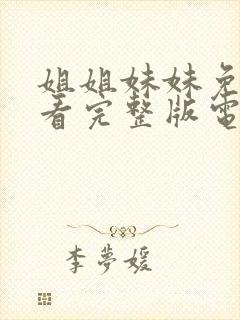 姐姐妹妹免
看完整版電
李夢媛